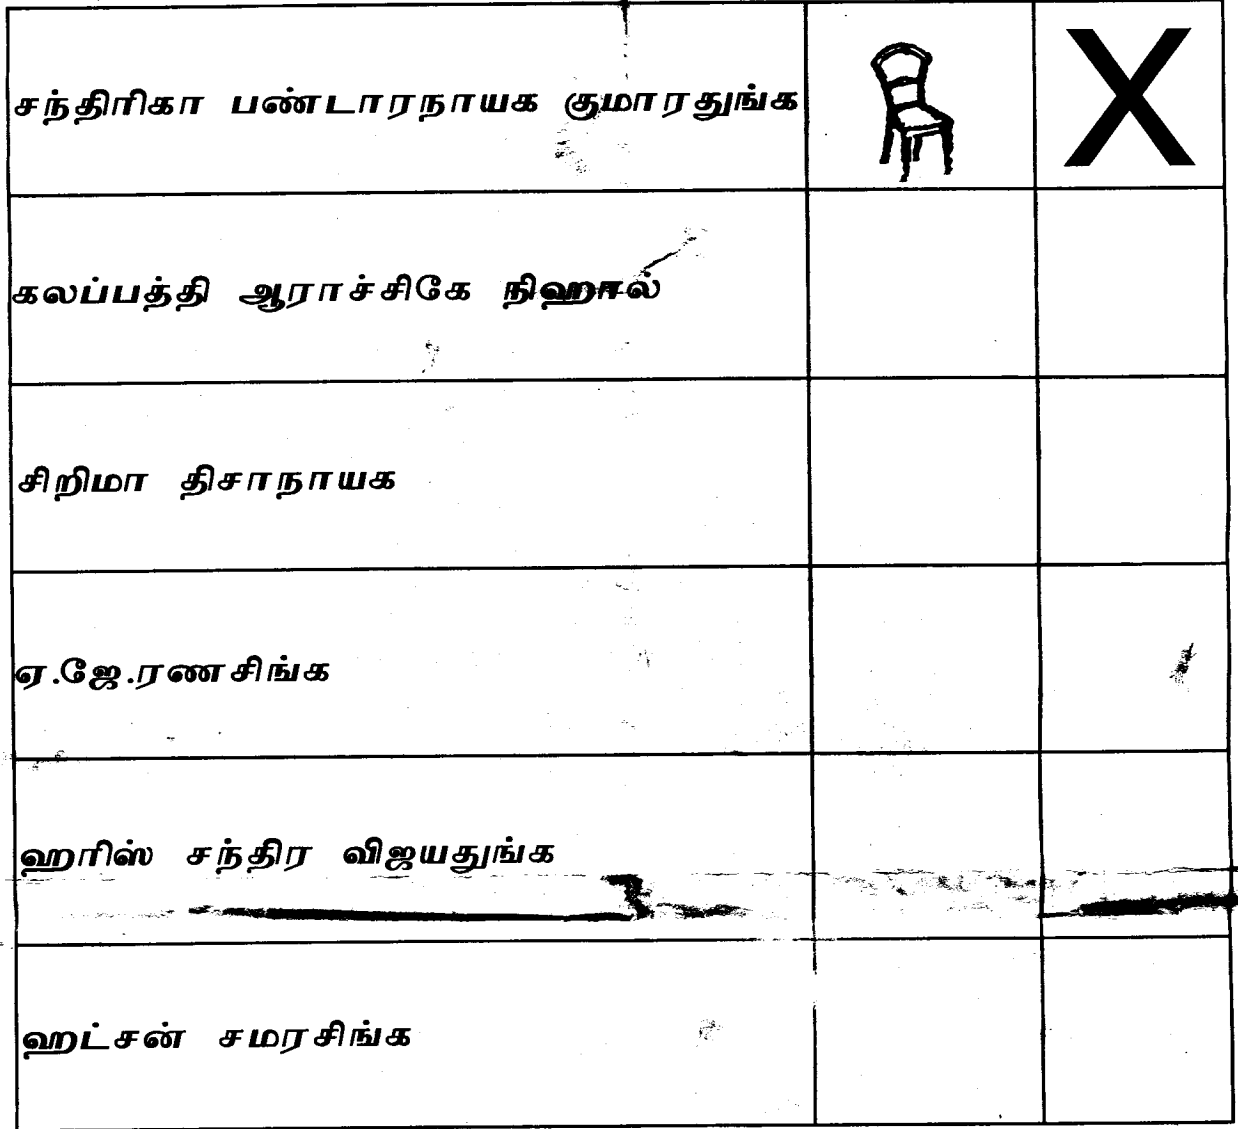 சந்திரிகா பண்டாரநாயக குமாரதுங்க X
கலப்பத்தி ஆராச்சிகே நிஹால்
சிறிமா திசாநாயக
ஏ.ஜே.ரணசிங்க
ஹரிஸ் சந்திர விஜயதுங்க
ஹட்சன் சமரசிங்க